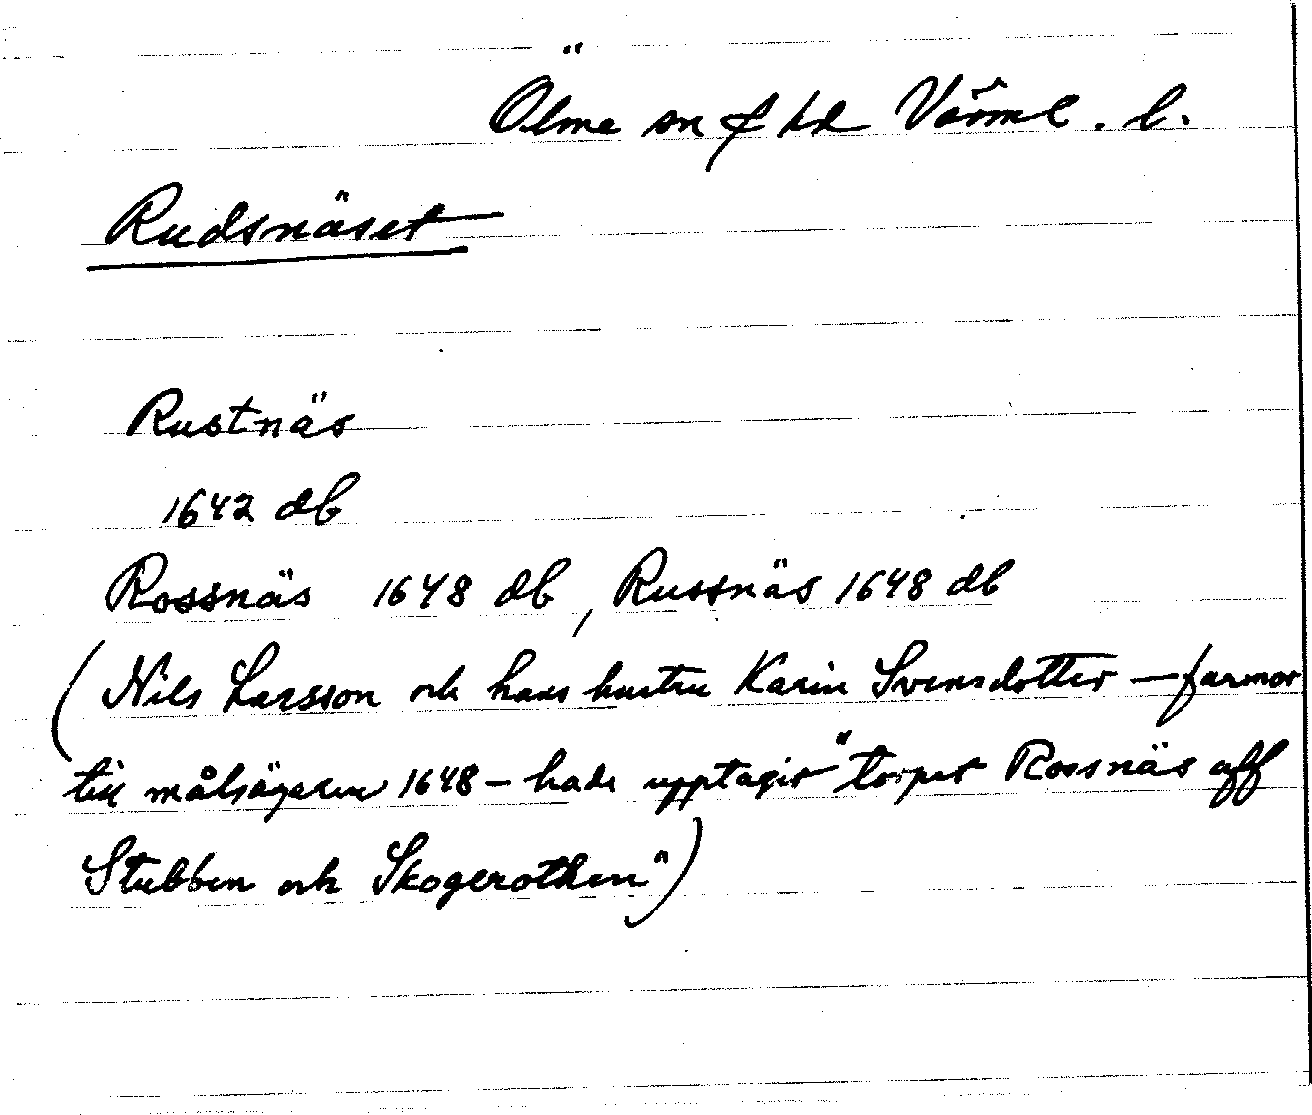 Ölme sn & hd Värml. l.
Rudsnäset
Rustnäs
1642 db
Rossnäs 1648 db, Russnäs 1648 db
(Nils Larsson och hans hustru Karin Svensdotter – farmor
till målsägaren 1648 – hade upptagit "torpet Rossnäs aff
Stubben och Skogerothen")